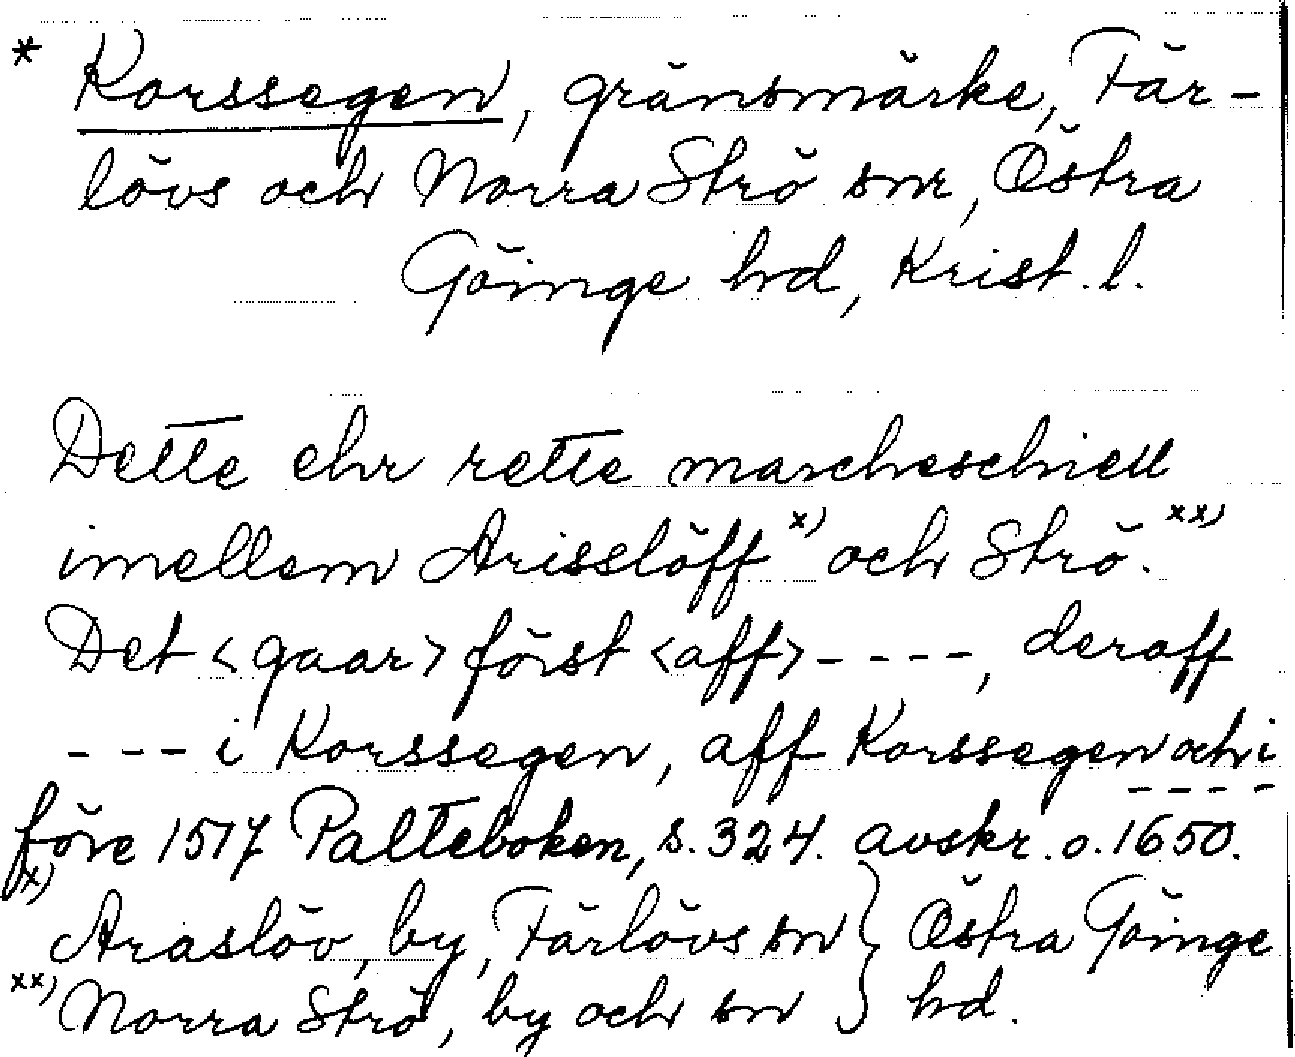 * Korssegen, gränsmärke, Fär-
lövs och Norra Strö snr, Östra
Göinge hd, Krist. l.
Dette ehr rette marcheschiell
imellem Arisslöff x) och Strö. xx)
Det <gaar> först <aff> - - - -, deraff
- - - i Korssegen, aff Korssegen och i
- - - -
före 1517 Palteboken, s. 324. avskr. o. 1650.
x) Araslöv, by, Färlövs sn } Östra Göinge
xx) Norra Strö, by och sn } hd.